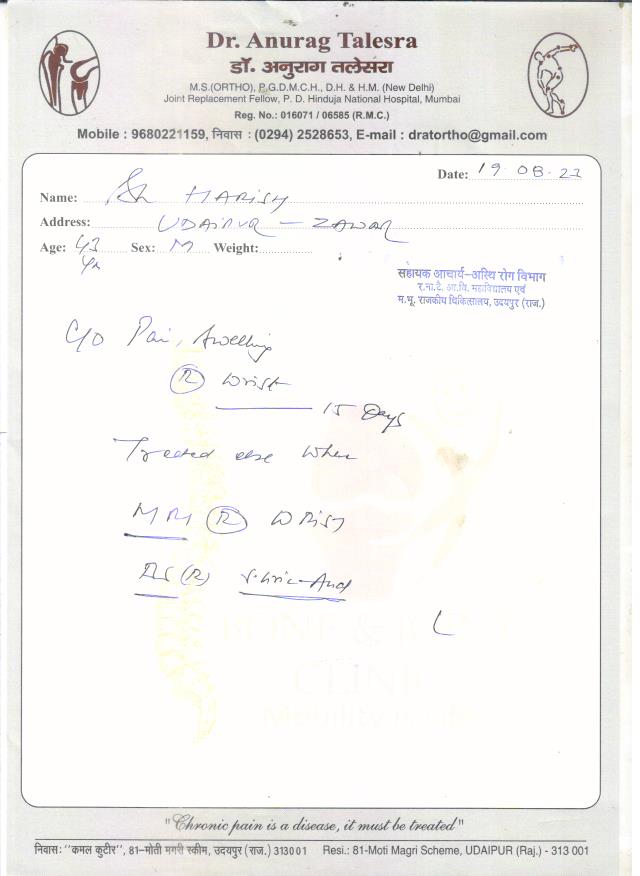 Dr. Anurag Talesra
डॉ. अनुराग तलेसरा
M.S.(ORTHO), P.G.D.M.C.H., D.H. & H.M. (New Delhi)
Joint Replacement Fellow, P. D. Hinduja National Hospital, Mumbai
Reg. No.: 016071 / 06585 (R.M.C.)
Mobile : 9680221159, निवास : (0294) 2528653, E-mail : dratortho@gmail.com
Date: 19.08.21
Name: Sh HARISH
Address: UDAIPUR - ZAWAR
Age: 43 Yr Sex: M Weight:
सहायक आचार्य-अस्थि रोग विभाग
र.ना.टै. आ.वि. महाविद्यालय एवं
म.भू. राजकीय चिकित्सालय, उदयपुर (राज.)
C/O Pain, Swelling
(R) Wrist
15 Days
Treated else where
MRI (R) WRIST
(R) S. Uric-Acid
BONE & JOINT
CLINIC
Mobility is Life
"Chronic pain is a disease, it must be treated"
निवास: "कमल कुटीर", 81-मोती मगरी स्कीम, उदयपुर (राज.) 313001 Resi.: 81-Moti Magri Scheme, UDAIPUR (Raj.) - 313 001